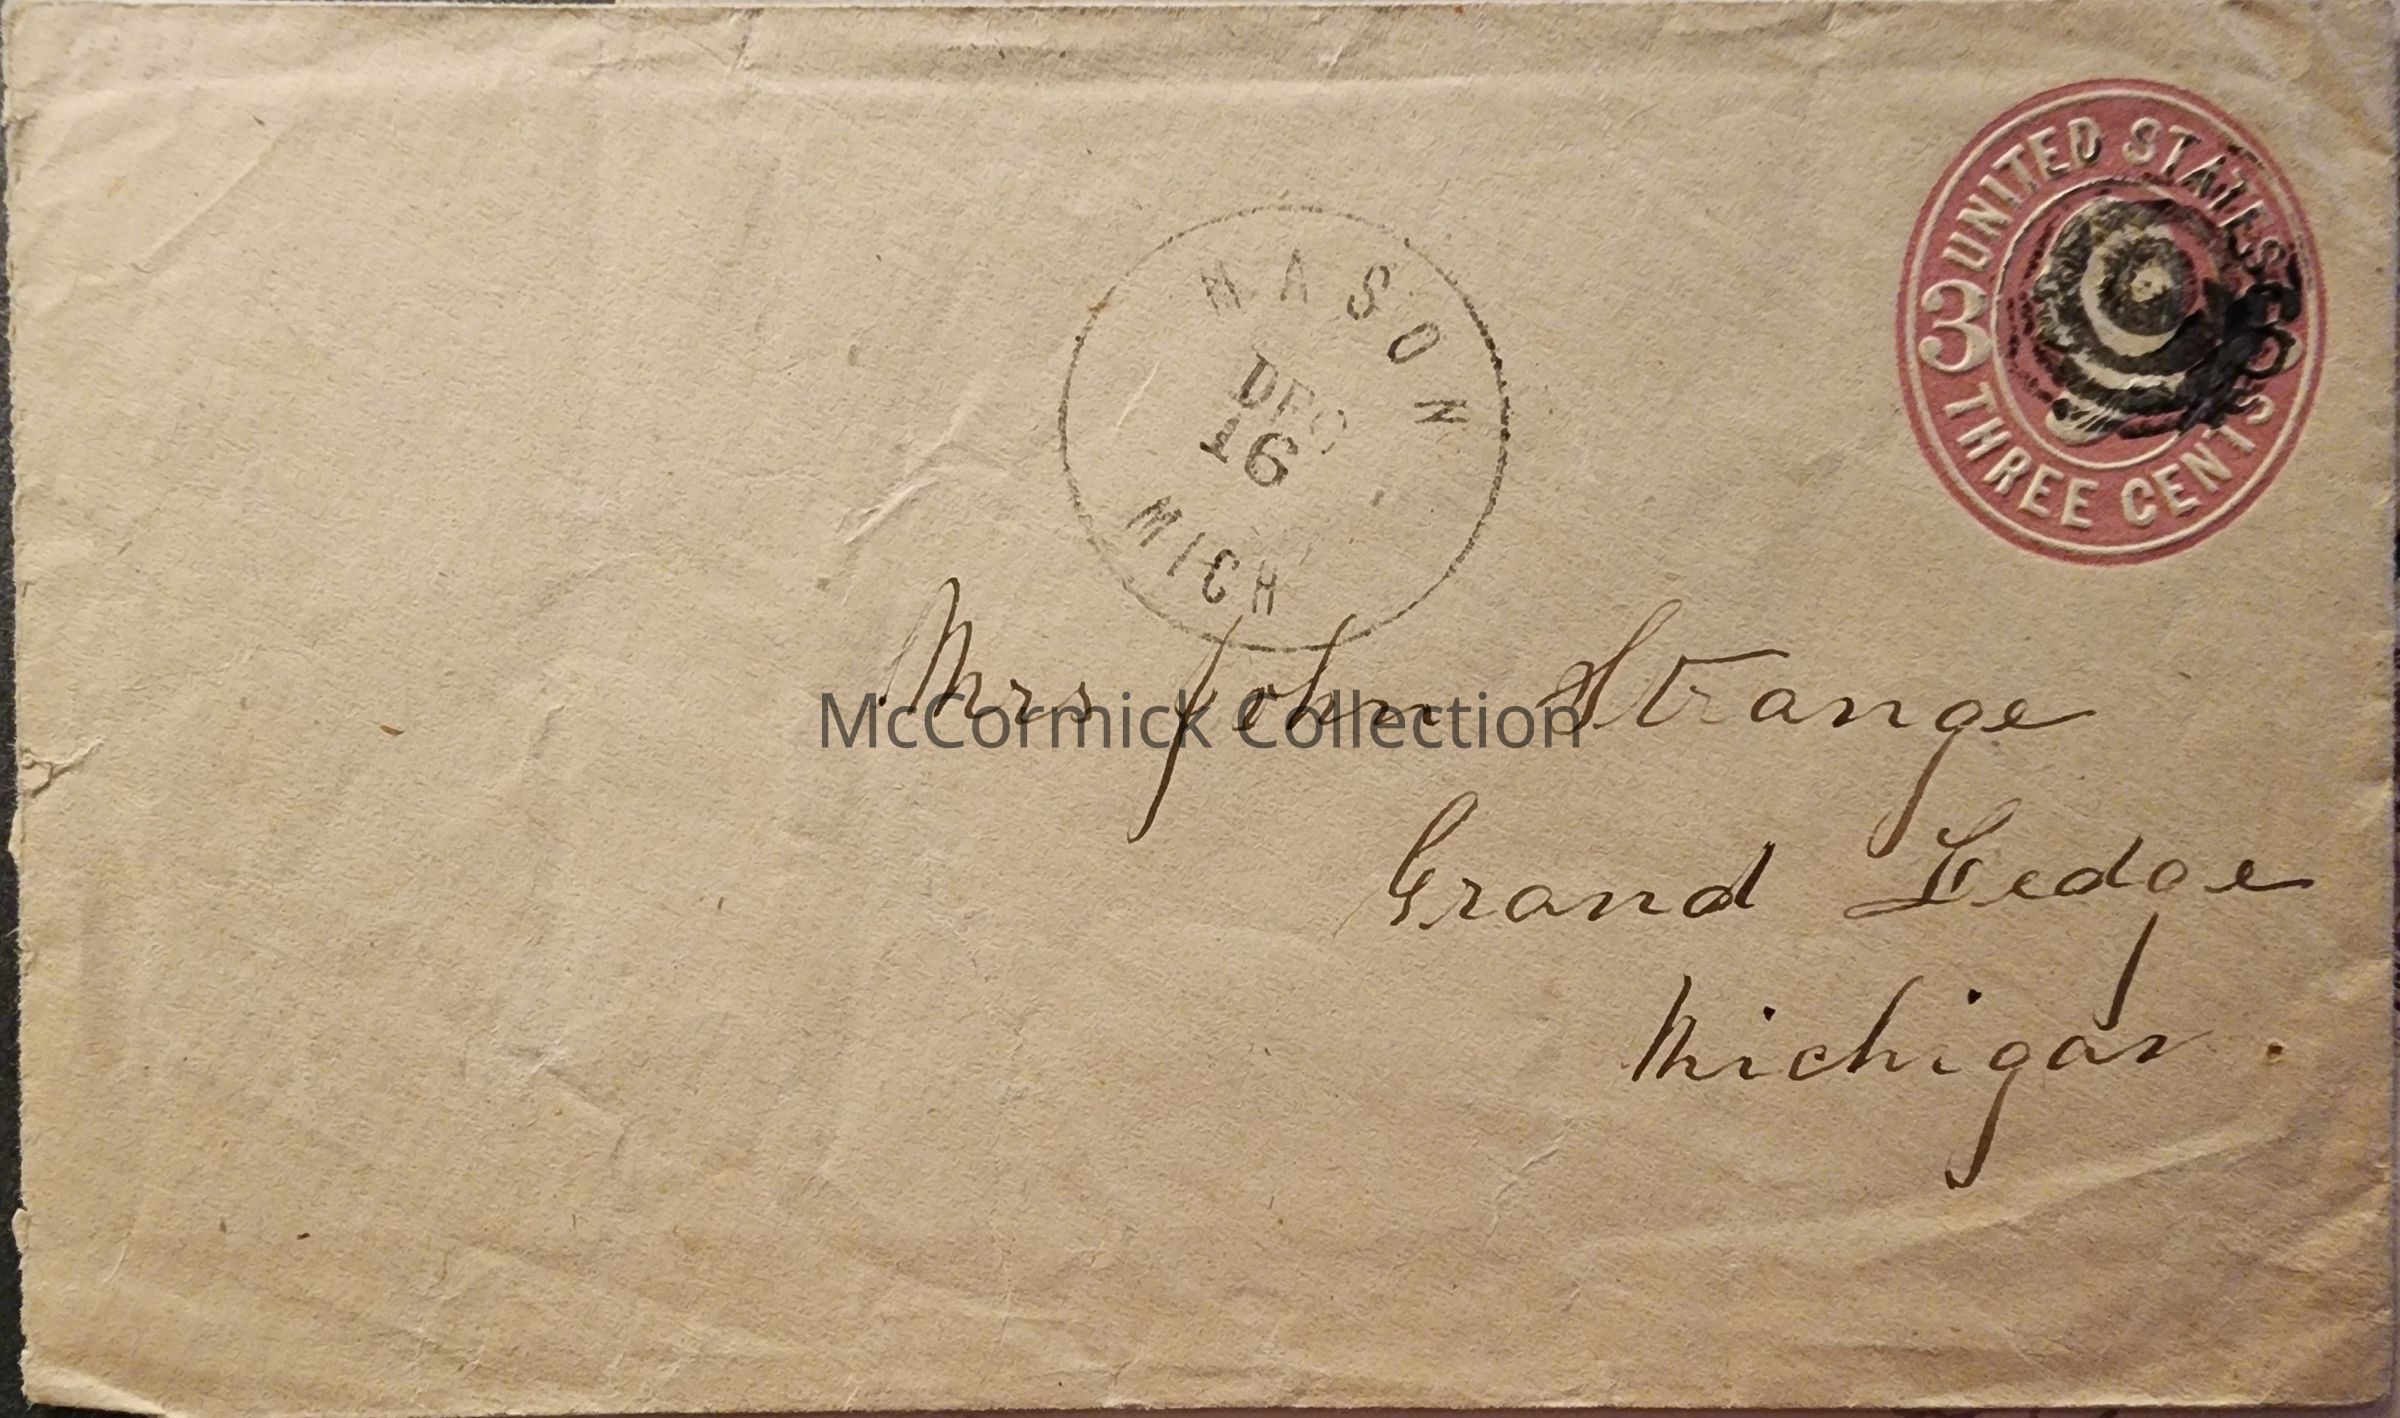 UNITED STATES
3 3
THREE CENTS
MASON
DEC
16
MICH
Mrs John Strange
McCormick Collection
Grand Ledge
Michigan.